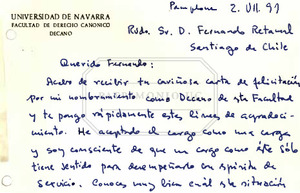 Pamplona 2. VII. 91
UNIVERSIDAD DE NAVARRA
FACULTAD DE DERECHO CANONICO
DECANO
Rvdo. Sr. D. Fernando Retamal
Santiago de Chile
Querido Fernando:
Acabo de recibir tu cariñosa carta de felicitación
por mi nombramiento como Decano de esta Facultad
y te pongo rápidamente estas líneas de agradeci-
miento. He aceptado el cargo como una carga
y soy consciente de que un cargo como éste sólo
tiene sentido para desempeñarlo con espíritu de
servicio. Conoces muy bien cuál es la situación